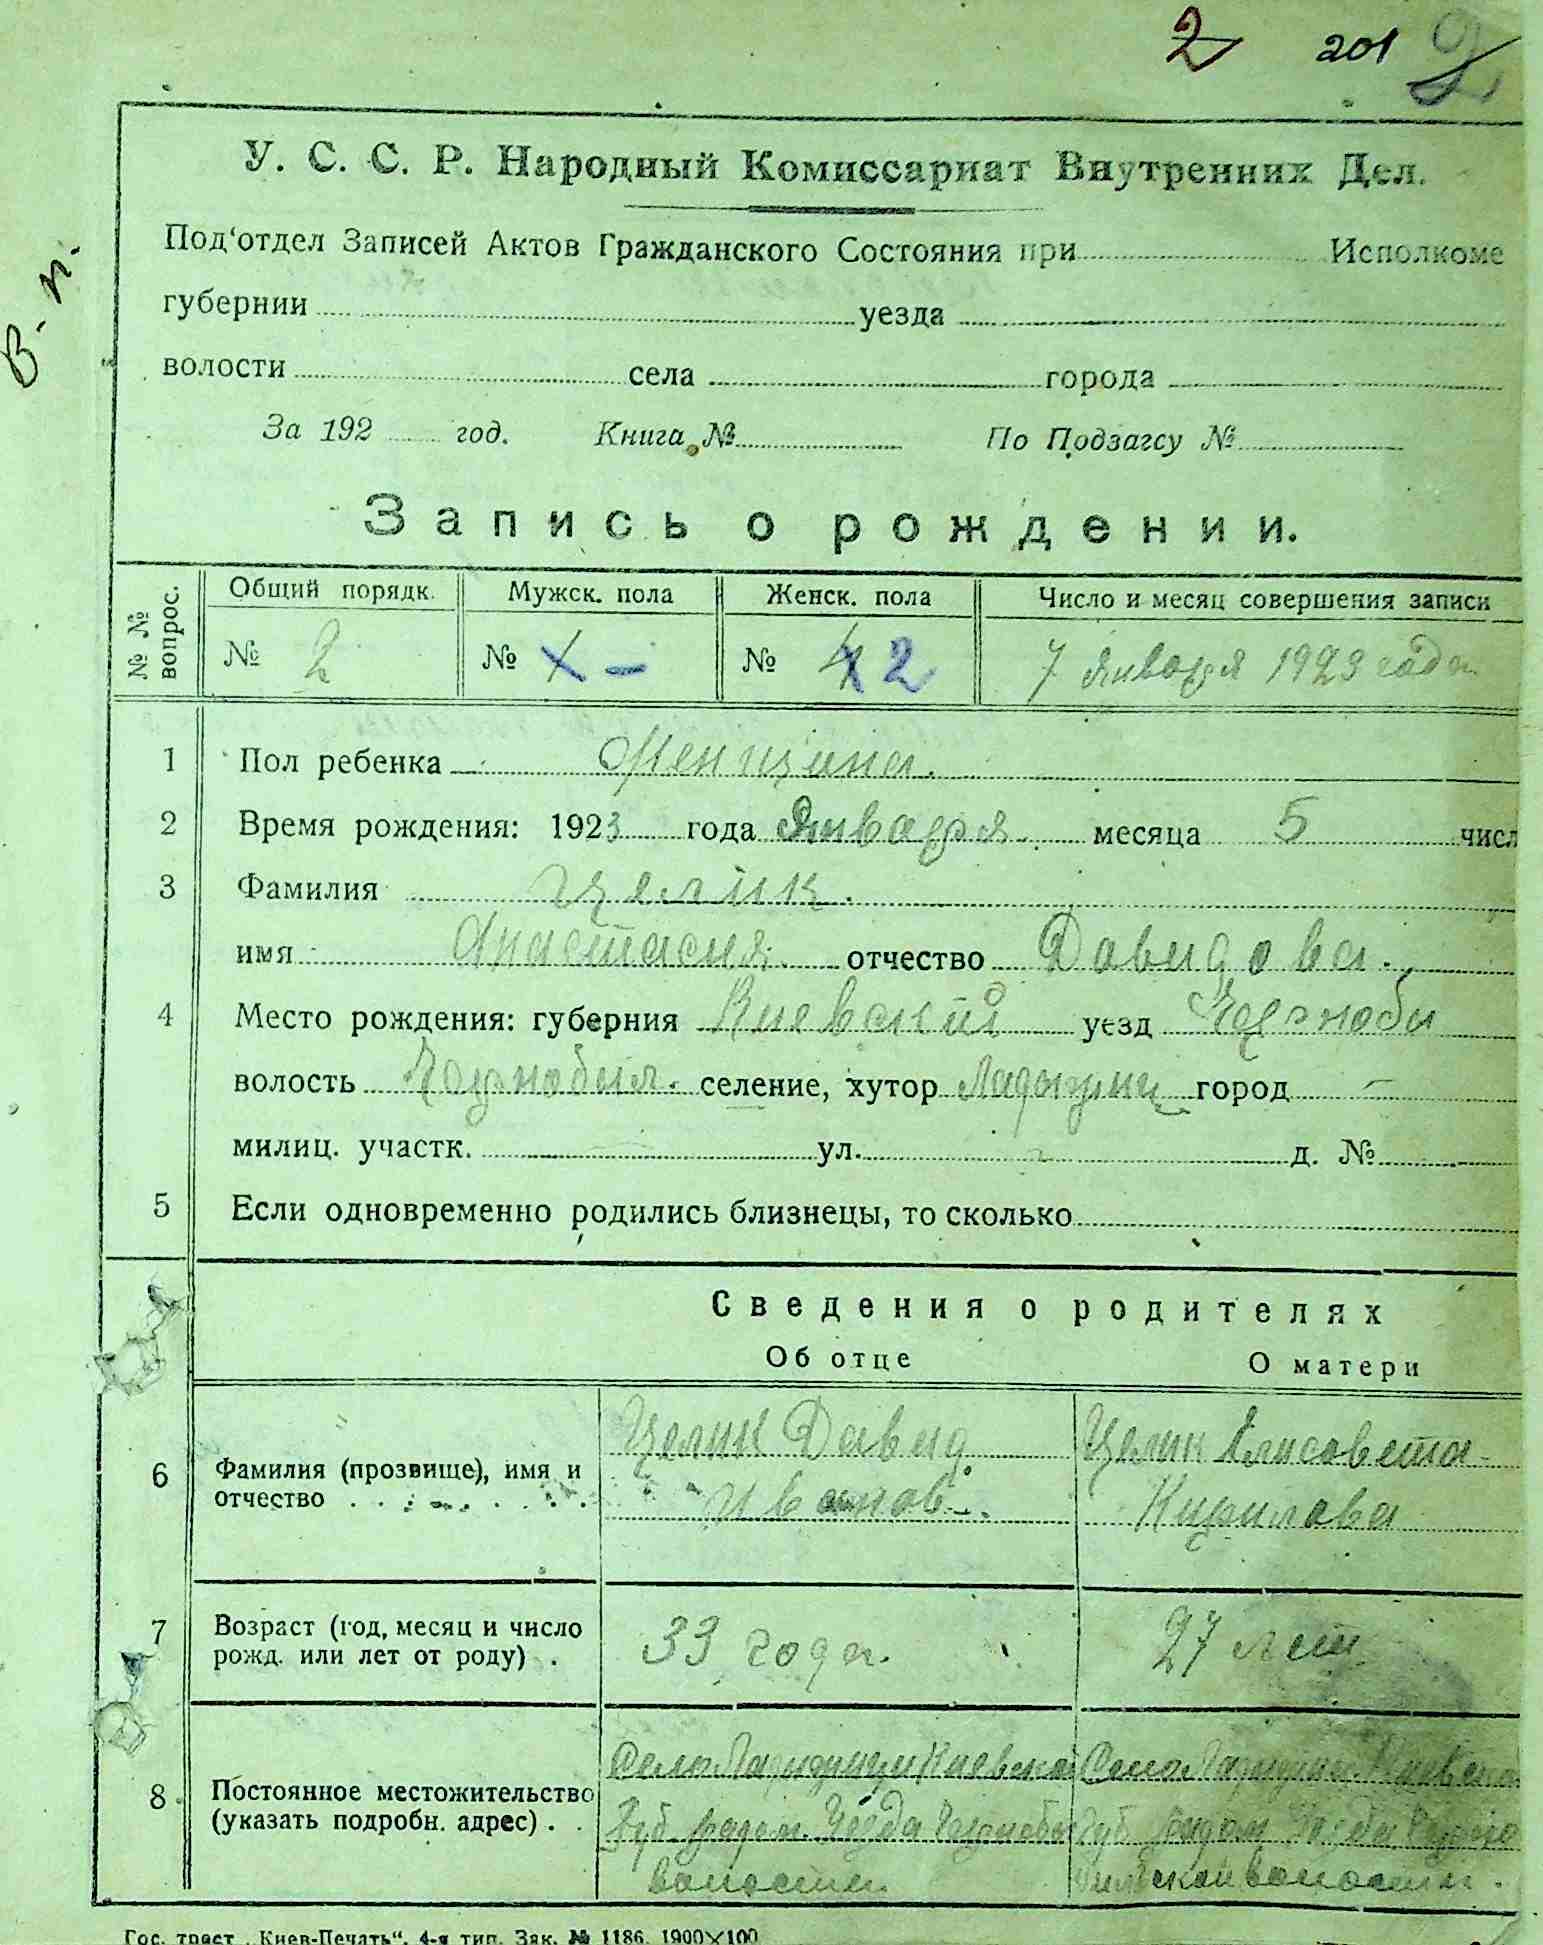 2 201 2
В. п.
У. С. С. Р. Народный Комиссариат Внутренних Дел.
Под'отдел Записей Актов Гражданского Состояния при Исполкоме
губернии уезда
волости села города
За 192 год. Книга № По Подзагсу №
Запись о рождении.
№ № вопрос. Общий порядк. Мужск. пола Женск. пола Число и месяц совершения записи
№ 2 № – № 2 7 Января 1923 года
1 Пол ребенка Женщина.
2 Время рождения: 1923 года Января месяца 5 числ
3 Фамилия Целик.
имя Анастасия отчество Давидова.
4 Место рождения: губерния Киевский уезд Чернобы
волость Чернобыл. селение, хутор город –
милиц. участк. ул. д. №
5 Если одновременно родились близнецы, то сколько
Сведения о родителях
Об отце О матери
6 Фамилия (прозвище), имя и отчество Целик Давид Иванов. Целик Елисовета Кирилова
7 Возраст (год, месяц и число рожд. или лет от роду) . 33 года. 27 лет
8 Постоянное местожительство (указать подробн. адрес) . . Село Киевской Губ. Уезда волости Село Губ. Уезда волости.
Гос. трест „Киев-Печать“. 4-я тип. Зак. № 1186. 1900×100